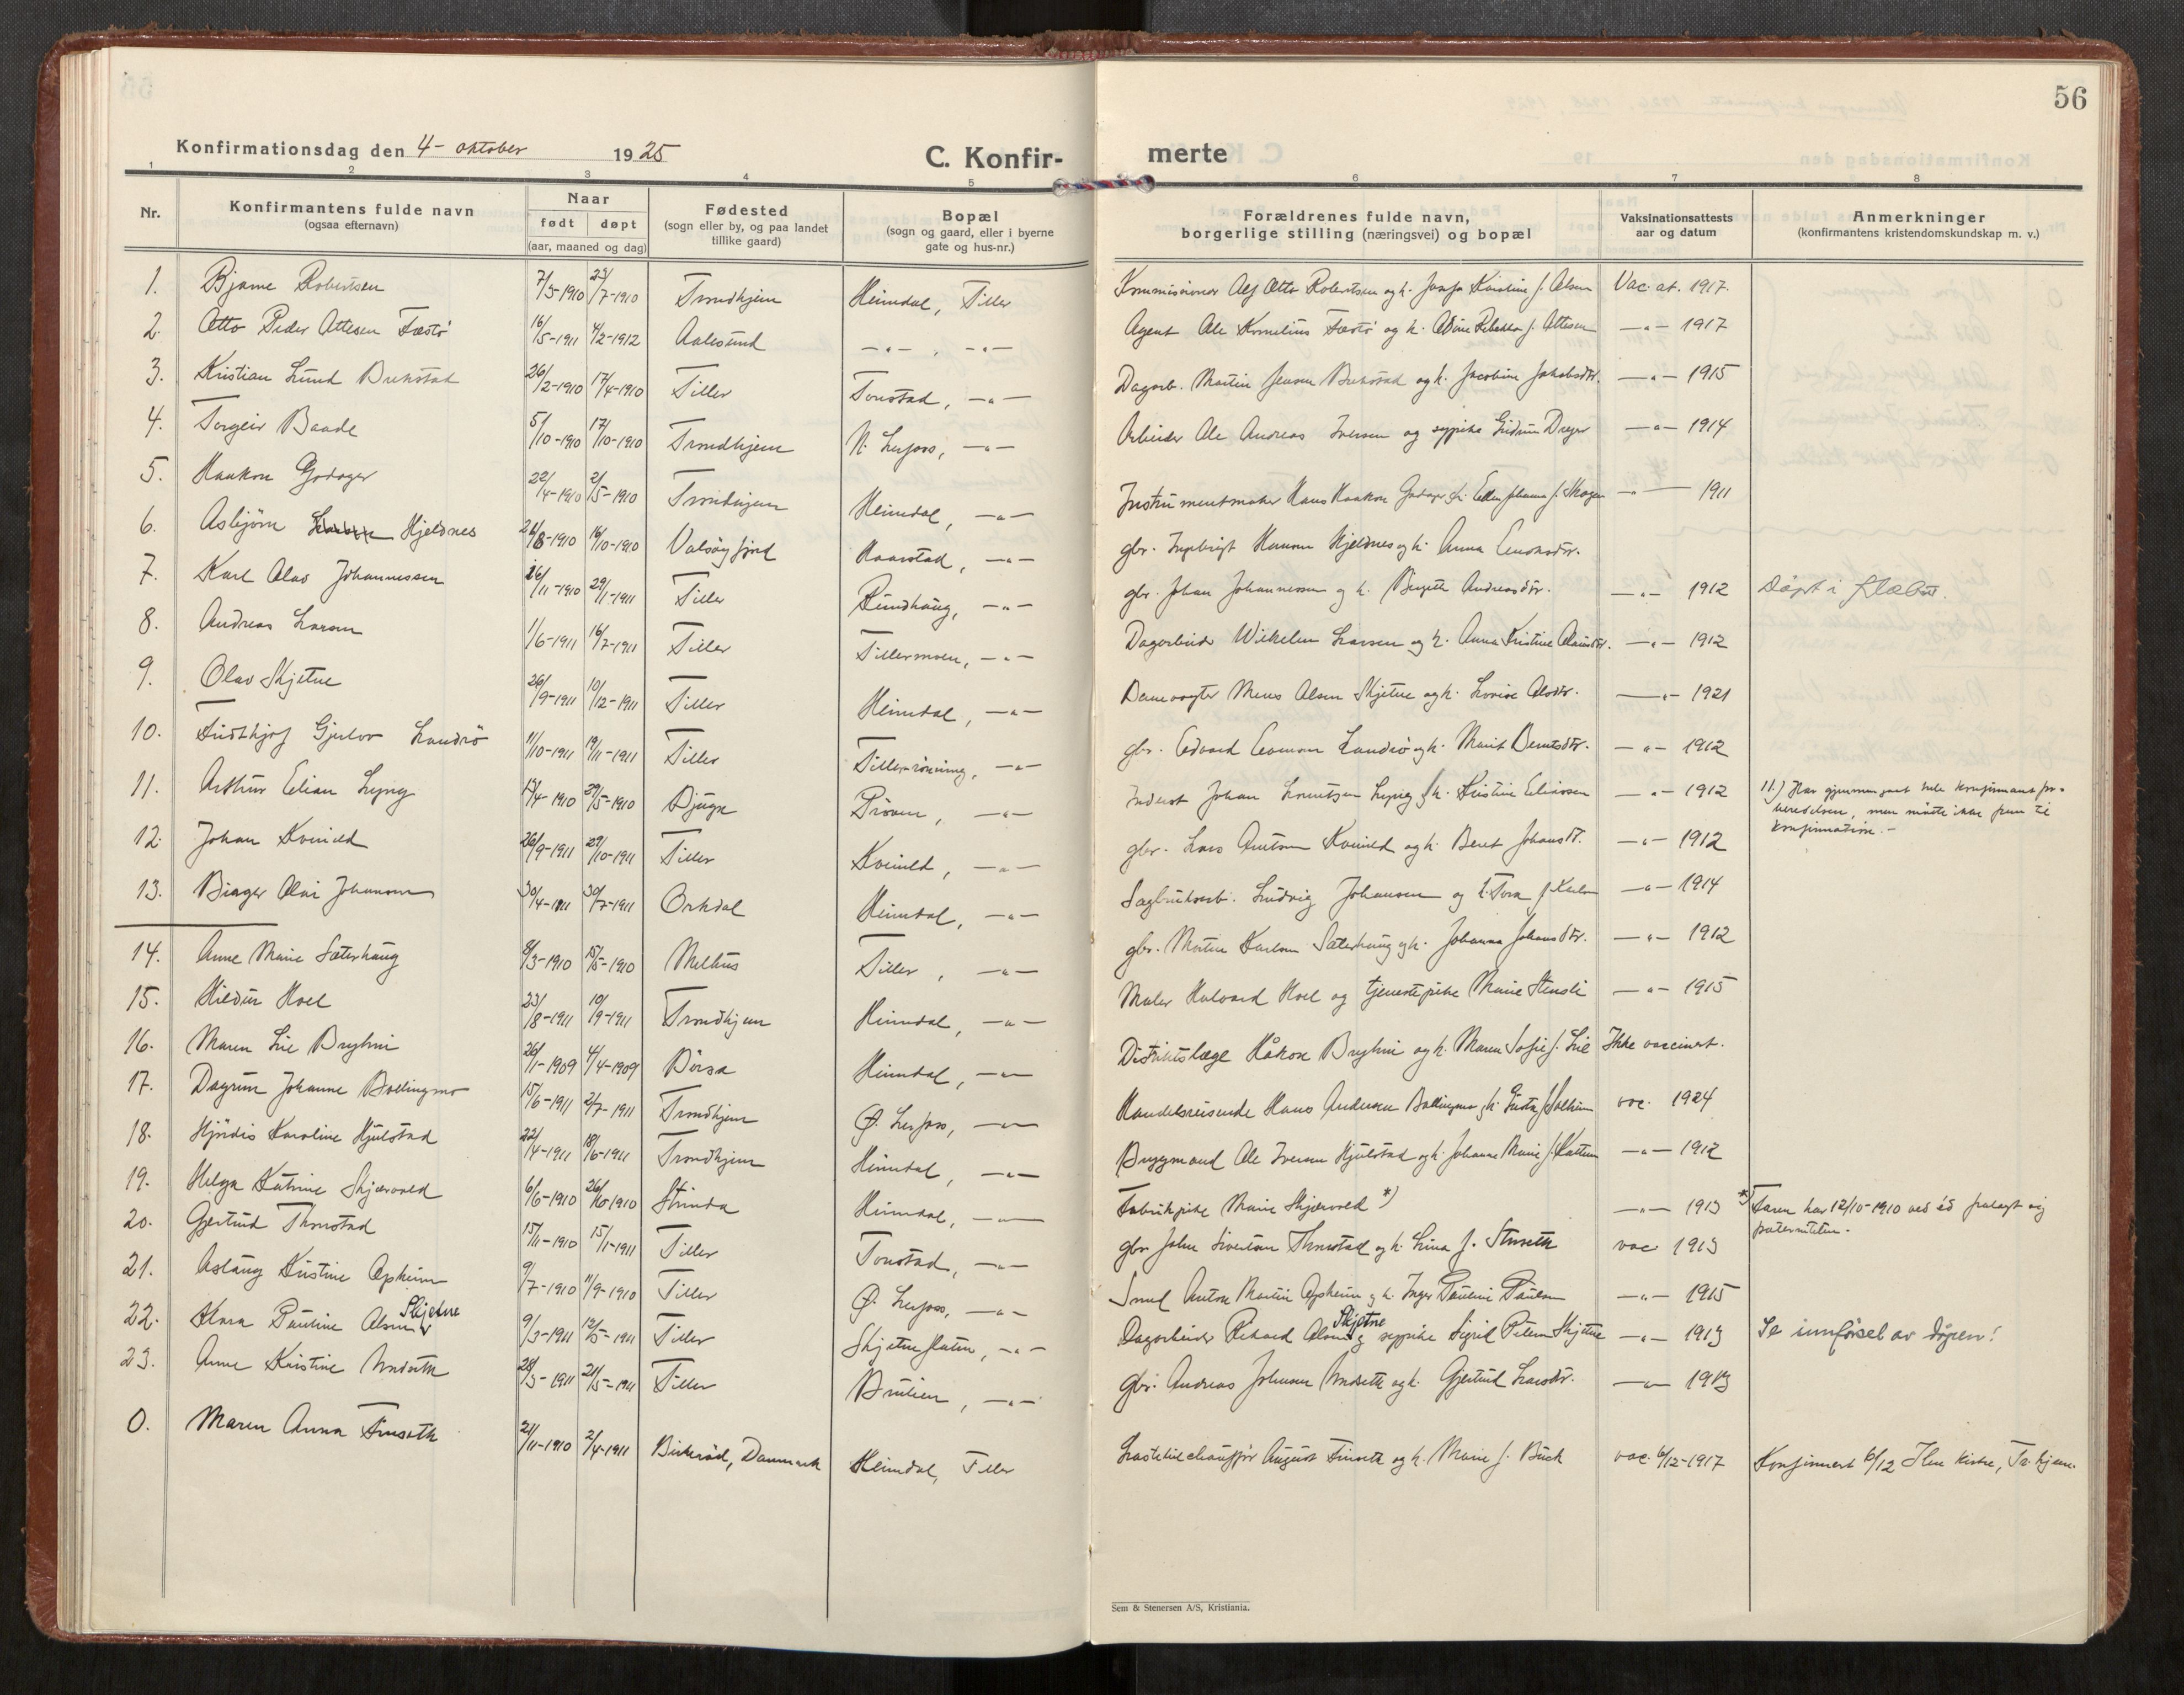 56
Konfirmationsdag den 4- oktober 1925
C. Konfir-
merte
1 2 3 4 5 6 7 8
Nr.
Konfirmantens fulde navn
(ogsaa efternavn)
Naar
født døpt
(aar, maaned og dag)
Fødested
(sogn eller by, og paa landet
tillike gaard)
Bopæl
(sogn og gaard, eller i byerne
gate og hus-nr.)
Forældrenes fulde navn,
borgerlige stilling (næringsvei) og bopæl
Vaksinationsattests
aar og datum
Anmerkninger
(konfirmantens kristendomskundskap m. v.)
1. Bjarne Robertsen 7/5-1910 23/7-1910 Trondhjem Heimdal, Tiller Kommisioner Alf Otto Robertsen og h. Josefa Karoline f. Olsen Vac. at. 1917.
2. Otto Peder Ottesen Fæstö 16/5-1911 4/2-1912 Aalesund -"- , -"- Agent Ole Kornelius Fæstö og h. Rebekka f. Ottesen -"- 1917
3. Kristian Lund Brekstad 26/2-1910 17/4-1910 Tiller Tonstad, -"- Dagarb. Martin Jensen Brekstad og h. Jacobine Jakobsdtr. -"- 1915
4. Torgeir Baade 5/10-1910 17/10-1910 Trondhjem N. Lerfoss, -"- Arbeider Ole Andreas Iversen og sypike Gudrun Dreyer -"- 1914
5. Haakon Godager 22/4-1910 2/5-1910 Trondhjem Heimdal, -"- Instrumentmaker Hans Haakon Godager og h. Ellen Johanna f. Skogen -"- 1911
6. Asbjörn Hjeldnes 21/8-1910 16/10-1910 Valsöyfjord Kaarstad, -"- gbr. Ingebrigt Hansen Hjeldnes og h. Anna Enoksdtr.
7. Karl Olav Johannessen 26/11-1910 29/1-1911 Tiller Rundhaug, -"- gbr. Johan Johannessen og h. Birgitte Andreasdtr. -"- 1912 Döpt i Klæbu.
8. Andreas Larsen 1/6-1911 16/7-1911 Tiller Tillermoen, -"- Dagarbeider Wilhelm Larsen og h. Anna Kristine Olausdtr. -"- 1912
9. Olav Skjetne 26/9-1911 10/12-1911 Tiller Heimdal, -"- Banevogter Mons Olsen Skjetne og h. Lovise Olsdtr. -"- 1921
10. Fridthjof Gjulov Landrö 11/10-1911 19/11-1911 Tiller Tiller-rönning, -"- gbr. Edvard Evensen Landrö og h. Marit Berntsdtr. -"- 1912
11. Arthur Elian Lyng 13/4-1910 29/5-1910 Bjugn Pröven, -"- Inderst Johan Lorentsen Lyng og h. Kristine Eliassen -"- 1912 11.) Har gjennemgaat hele konfirmantfor-
beredelsen, men mötte ikke frem til
konfirmation.-
12. Johan Kvineld 26/9-1911 29/10-1911 Tiller Kvineld, -"- gbr. Lars Arntsen Kvineld og h. Beret Johansdt. -"- 1912
13. Birger Olai Johansen 30/4-1911 30/7-1911 Orkdal Heimdal, -"- Sagbruksarb. Ludvig Johansen og h. Tora f. Karlsen -"- 1914
14. Anne Marie Sæterhaug 8/3-1910 15/5-1910 Melhus Tiller, -"- gbr. Martin Karlsen Sæterhaug og h. Johanna Johansdtr. -"- 1912
15. Hildur Hoel 23/8-1911 10/9-1911 Trondhjem Heimdal, -"- Maler Halvard Hoel og tjenestepike Marie Stensli -"- 1915
16. Maren Lie Bryhni 26/1-1909 4/4-1909 Börsa Heimdal, -"- Distriktslæge Håkon Bryhni og h. Maren Sofie f. Lie Ikke vaccinert.
17. Dagrun Johanne Bollingmo 15/6-1911 2/7-1911 Trondhjem Ø. Lerfoss, -"- Handelsreisende Hans Andersen Bollingmo og h. Gusta f. Solheim vac. 1924
18. Hjördis Karoline Hjulstad 22/4-1911 18/6-1911 Trondhjem Heimdal, -"- Bryggmand Ole Iversen Hjulstad og h. Johanne Marie f. Kattem -"- 1912
19. Helga Katrine Skjærvold 6/6-1910 26/6-1910 Strinda Heimdal, -"- Fabrikpike Marie Skjærvold *) -"- 1913 *) Faren har 12/10-1910 ved éd fralagt sig
paterniteten.-
20. Gjertrud Thonstad 15/11-1910 15/1-1911 Tiller Tonstad, -"- gbr John Sivertsen Thonstad og h. Lina f. Stuseth vac 1913
21. Aslaug Kristine Opheim 9/7-1910 11/9-1910 Tiller Ø. Lerfoss, -"- Smed Anton Martin Opheim og h. Inger Pauline Paulsen -"- 1915
22. Klara Pauline Olsen Skjetne 9/3-1911 12/5-1911 Tiller Skjetneflaten, -"- Dagarbeider Rikard Olsen Skjetne og sypike Sigrid Petersen Skjetne -"- 1913 Se innførsel av dåpen!
23. Anne Kristine Undseth 28/3-1911 21/5-1911 Tiller Brulien, -"- gbr. Andreas Johnsen Undseth og h. Gjertrud Larsdtr. -"- 1913
0. Maren Anna Finseth 21/11-1910 2/4-1911 Birkeröd, Danmark Heimdal, Tiller Lastebilchauffør August Finseth og h. Marie f. Buch vac. 6/12-1917 Konfirmert 6/12 Ilen kirke, Tr.hjem.
Sem & Stenersen A/S, Kristiania.